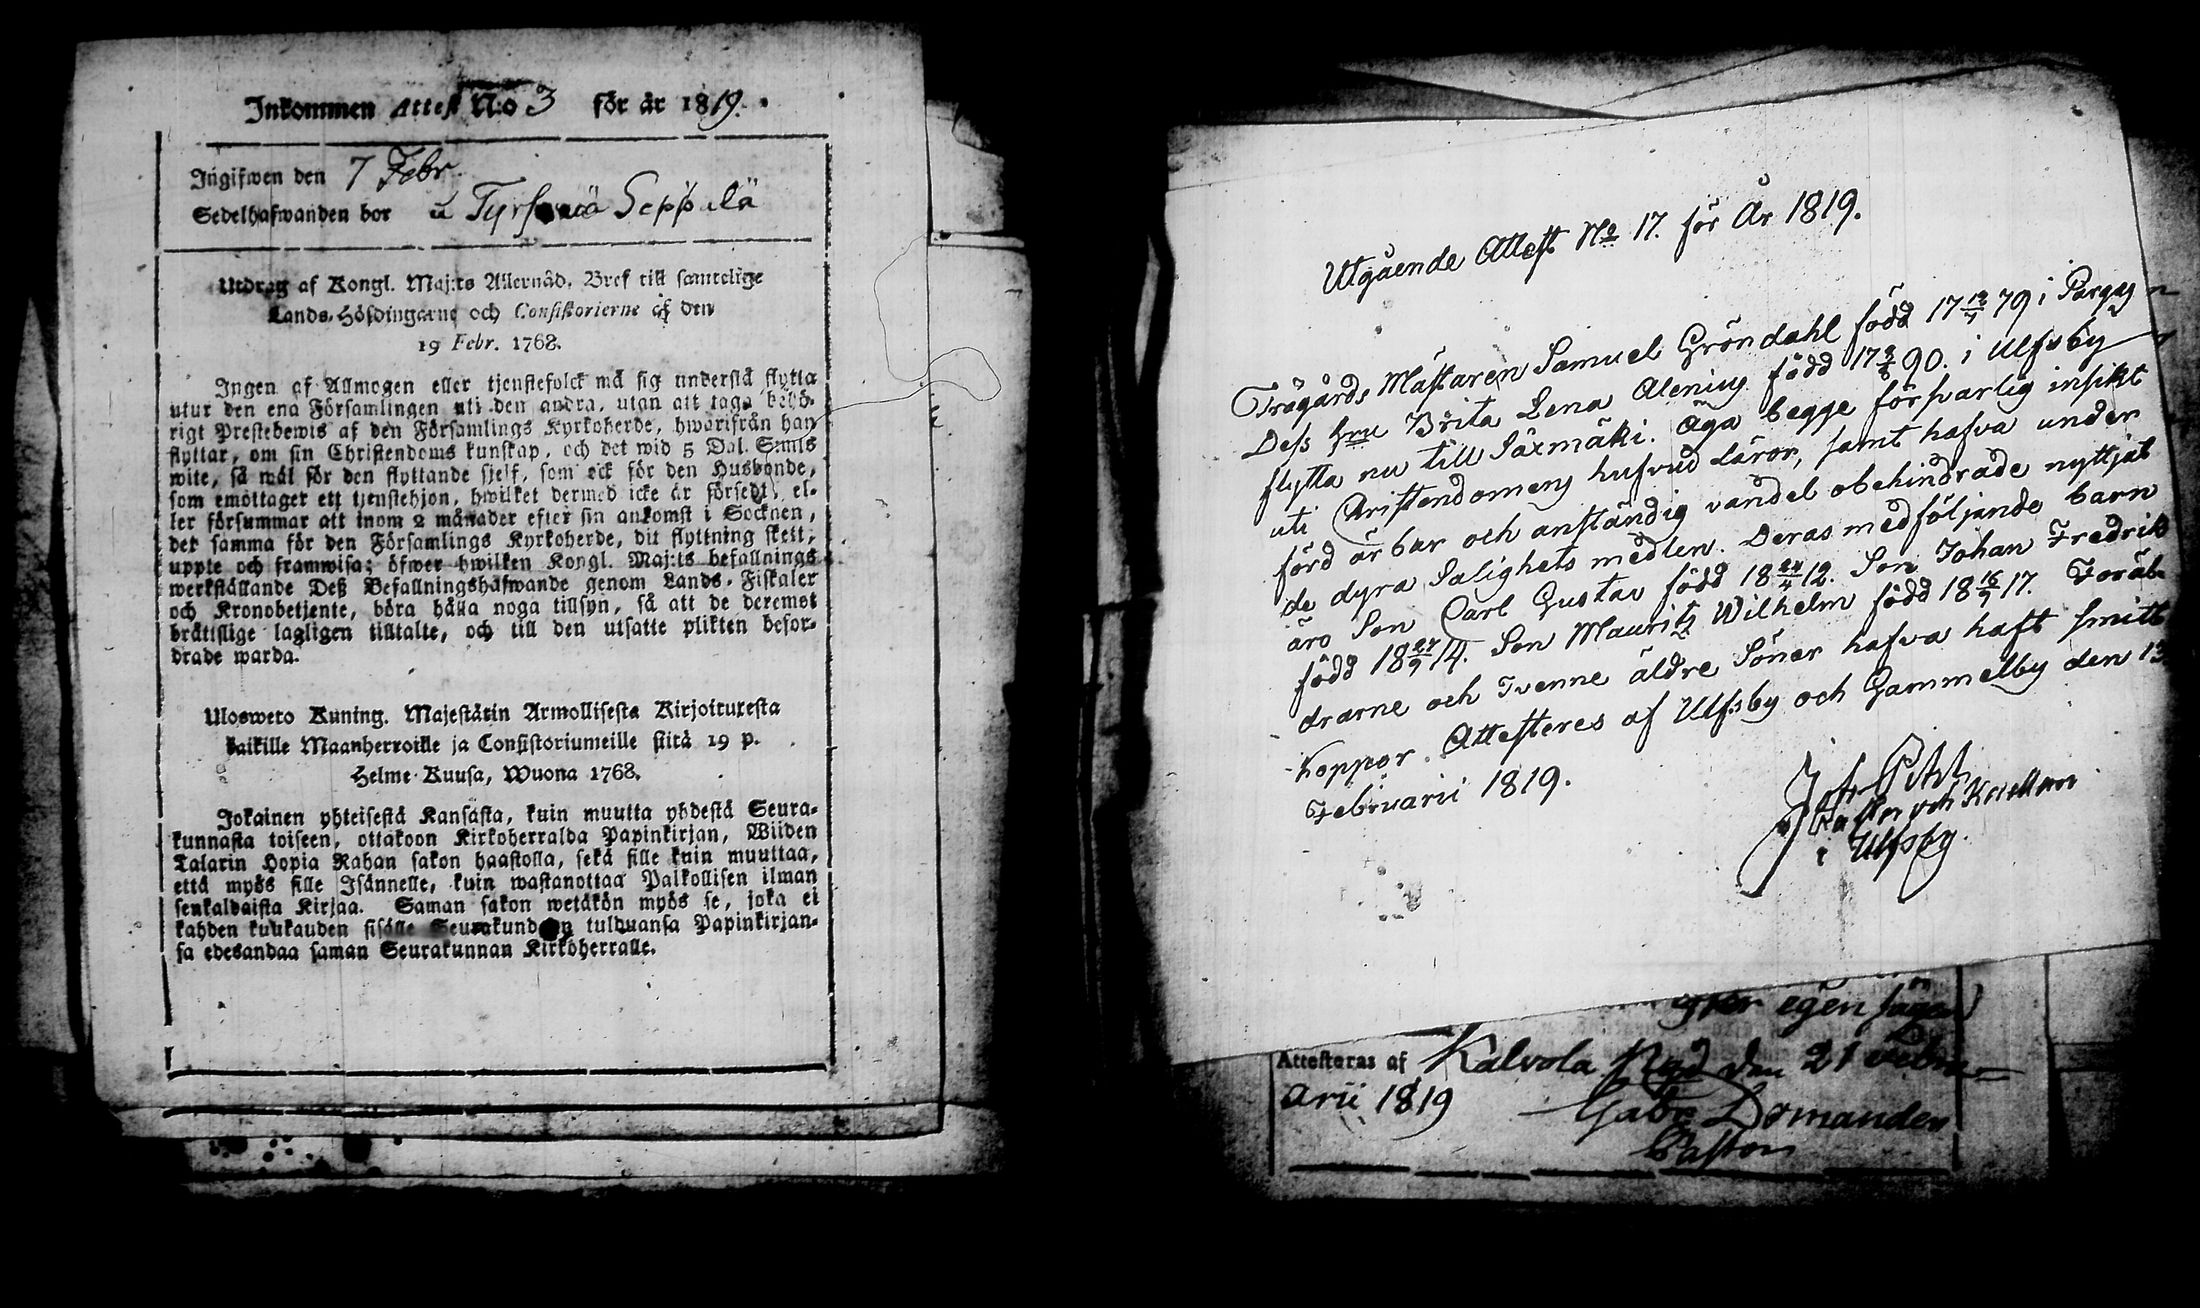 Inkommen Attest N:o 3 för år 1819.
Ingifwen den 7 Febr.
Sedelhafwanden bor å Seppälä
Utdrag af Kongl. Maj:ts Allernåd. Bref till samtelige
Lands-Höfdingarne och Consistorierne af den
19 Febr. 1768.
Ingen af Allmogen eller tjenstefolck må sig understå flytta
utur den ena Församlingen uti den andra, utan att taga behö-
rigt Prestebewis af den Församlings Kyrkoherde, hwarifrån han
flyttar, om sin Christendoms kunskap, och det wid 5 Dal. S:mts
wite, så wäl för den flyttande sjelf, som ock för den Husbonde,
som emottager ett tjenstehjon, hwilket dermed icke är försedt, el-
ler försummar att inom 2 månader efter sin ankomst i Socknen,
det samma för den Församlings Kyrkoherde, dit flyttning skett,
uppte och framwisa; öfwer hwilken Kongl. Maj:ts befallnings
werkställande Deß Befallningshafwande genom Lands-Fiskaler
och Kronobetjente, böra hålla noga tillsyn, så att de deremot
bråttslige lagligen tilltalte, och till den utsatte plikten befor-
drade warda.
Ulosweto Kuning. Majestätin Armollisesta Kirjoituxesta
kaikille Maanherroille ja Consistoriumeille siitä 19 p.
Helme-Kuusa, Wuona 1768.
Jokainen yhteisestä Kansasta, kuin muutta yhdestä Seura-
kunnasta toiseen, ottakoon Kirkoherralda Papinkirjan, Wiiden
Talarin Hopia Rahan sakon haastolla, sekä sille kuin muuttaa,
että myös sille Isännelle, kuin wastanottaa Palkollisen ilman
senkaldaista Kirjaa. Saman sakon wetäkön myös se, joka ei
kahden kuukauden sisälle Seurakundaan tulduansa Papinkirjan-
sa edesandaa saman Seurakunnan Kirkoherralle.
Utgående Attest No 17. för År 1819.
Trägårds Mästaren Samuel Gröndahl född 17 79 i Pargas
Dess Fru Brita Lena Alenius född 17 90. i Ulfsby
flytta nu till Säxmäki. Äga begge försvarlig insikt
uti Christendomens hufvud Läror, samt hafva under
förd ärbar och anständig vandel obehindrade nyttjat
de dyra Salighets medlen. Deras medföljande barn
äro Son Carl Gustav född 18 24/4 12. Son Johan Fredrik
född 18 27/7 14. Son Mauritz Wilhelm född 18 16/7 17. Föräl-
drarne och Tvenne äldre Söner hafva haft smitt
koppor. Attesteres af Ulfsby och Gammelby den 13
Februarii 1819.
Pastor och
i Ulfsby.
egen säge
Attesteras af Kalvola Pgd den 21 Febru-
arii 1819
Gabr
Pastor